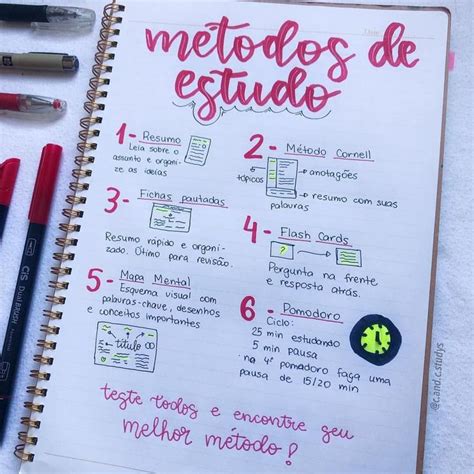 métodos de
estudo
1- Resumo
Leia sobre o
assunto e organi-
ze as ideias
2- Método Cornell
tópicos
anotações
resumo com suas
palavras
3- Fichas pautadas
Resumo rápido e organi-
zado. Ótimo para revisão.
4- Flash Cards
?
Pergunta na frente
e resposta atrás.
5- Mapa Mental
Esquema visual com
palavras-chave, desenhos
e conceitos importantes
título
6- Pomodoro
Ciclo:
25 min estudando
5 min pausa
na 4º pomodoro faça uma
pausa de 15/20 min
teste todos e encontre seu
melhor método!
@c.and.c.studys
CiS
Dual BRUSH